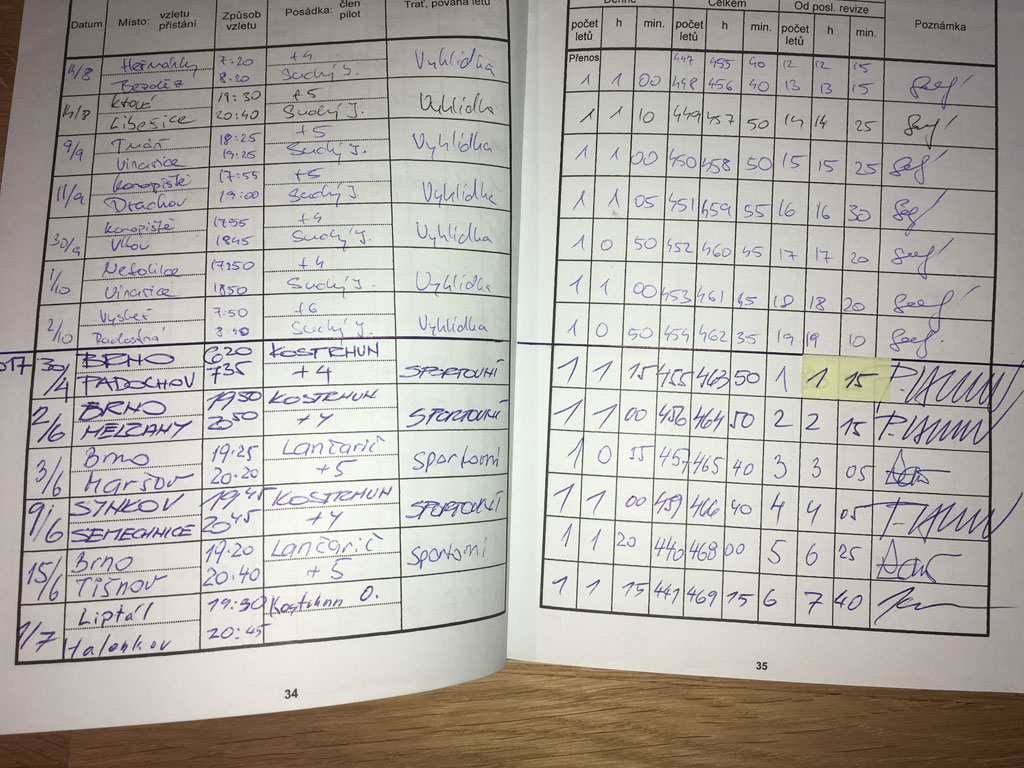 Datum Místo: vzletu přistání Způsob vzletu Posádka: člen pilot Trať, povaha letu
Denně Celkem Od posl. revize Poznámka
počet letů h min. počet letů h min. počet letů h min.
Přenos 447 455 40 12 12 15
14/8 Heřmánky 7:20 +4 Vyhlídka
Bezděz 8:20 Suchý J. 1 1 00 448 456 40 13 13 15
14/8 19:30 +5 Vyhlídka
Libošice 20:40 Suchý J. 1 1 10 449 457 50 14 14 25
9/9 18:25 +5 Vyhlídka
Vinařice 19:25 Suchý J. 1 1 00 450 458 50 15 15 25
11/9 Konopiště 17:55 +5 Vyhlídka
Drachov 19:00 Suchý J. 1 1 05 451 459 55 16 16 30
30/9 Konopiště 1755 +4 Vyhlídka
Vlkov 1845 Suchý J. 1 0 50 452 460 45 17 17 20
1/10 Netolice 17:50 +4 Vyhlídka
Vinařice 1850 Suchý J. 1 1 00 453 461 45 18 18 20
2/10 7:50 +6 Vyhlídka
Radostná 8:40 Suchý J. 1 0 50 454 462 35 19 19 10
2017 30/4 BRNO 620 KOSTRHUN SPORTOVNÍ
PADOCHOV 735 +4 1 1 15 455 463 50 1 1 15
2/6 BRNO 1950 KOSTRHUN SPORTOVNÍ
2050 +4 1 1 00 456 464 50 2 2 15
3/6 Brno 19:25 Lančarič Sportovní
Maršov 20:20 +5 1 0 55 457 465 40 3 3 05
9/6 SYNKOV 1945 KOSTRHUN SPORTOVNÍ
SEMECHNICE 2045 +4 1 1 00 459 466 40 4 4 05
15/6 Brno 19:20 Lančarič Sportovní
Tišnov 20:40 +5 1 1 20 440 468 00 5 6 25
1/7 Liptál 19:30 Kostrhun O.
Halenkov 20:45 1 1 15 441 469 15 6 7 40
34
35